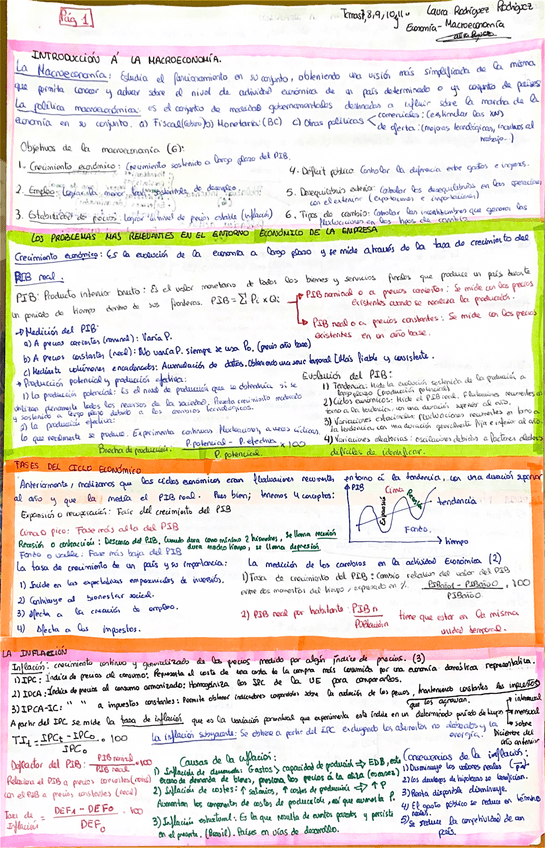 Pág 1
Temas 7,8,9,10,11
Laura Rodríguez Rodríguez
Economía - Macroeconomía
INTRODUCCIÓN A LA MACROECONOMÍA.
La Macroeconomía: Estudia el funcionamiento en su conjunto, obteniendo una visión más simplificada de la misma
que permita conocer y actuar sobre el nivel de actividad económica de un país determinado o un conjunto de países
La política macroeconómica: es el conjunto de medidas gubernamentales destinadas a influir sobre la marcha de la
economía en su conjunto. a) Fiscal b) Monetaria (BC) c) Otras políticas
comerciales: (estimular las
de oferta: (mejoras tecnológicas, incentivos al
trabajo...)
Objetivos de la macroeconomía (6):
1. Crecimiento económico: Crecimiento sostenido a largo plazo del PIB.
2. Empleo:
3. Estabilidad de precios: nivel de precios estable (inflación)
4. Déficit público: Controlar la diferencia entre gastos e ingresos.
5. Desequilibrio exterior: Controlar los desequilibrios en las operaciones
con el exterior (exportaciones e importaciones)
6. Tipos de cambio: Controlar las incertidumbres que generan las
fluctuaciones en los tipos de cambio
LOS PROBLEMAS MAS RELEVANTES EN EL ENTORNO ECONÓMICO DE LA EMPRESA
Crecimiento económico: Es la evolución de la economía a largo plazo y se mide a través de la tasa de crecimiento del
PIB real.
PIB: Producto interior bruto: Es el valor monetario de todos los bienes y servicios finales que produce un país durante
un período de tiempo dentro de sus fronteras. PIB = Σ Pi × Qi
PIB nominal o a precios corrientes: Se mide con los precios
existentes cuando se realiza la producción.
PIB real o a precios constantes: Se mide con los precios
existentes en un año base.
→ Medición del PIB:
a) A precios corrientes (nominal): Varía P.
b) A Precios constantes (real): NO varía P. siempre se usa P0. (precio año base)
c) Mediante volúmenes encadenados: Acumulación de datos. Obteniendo una serie temporal (Más fiable y consistente.
→ Producción potencial y producción efectiva:
1) La producción potencial: Es el nivel de producción que se obtendría si se
utilizan plenamente todos los recursos de la sociedad. Presenta crecimiento moderado
y sostenido a largo plazo debido a los avances tecnológicos.
2) La producción efectiva:
Lo que realmente se produce. Experimenta continuas fluctuaciones, a veces cíclicas.
Brecha de producción: P.potencial - P.efectiva / P.potencial × 100
Evolución del PIB:
1) Tendencia: Mide la evolución sostenida de la producción a
largo plazo (producción potencial)
2) Ciclos económicos: Mide el PIB real. Fluctuaciones recurrentes en
torno a la tendencia, con una duración superior al año.
3) Variaciones estacionales: Fluctuaciones recurrentes en torno a
la tendencia, con una duración generalmente fija e inferior al año.
4) Variaciones aleatorias: oscilaciones debidas a factores aleatorios
difíciles de identificar.
FASES DEL CICLO ECONÓMICO
Anteriormente, realizamos que los ciclos económicos eran fluctuaciones recurrentes en torno a la tendencia, con una duración superior
al año y que la medía el PIB real. Pues bien; tenemos 4 conceptos:
Expansión o recuperación: Fase del crecimiento del PIB
Cima o pico: Fase más alta del PIB
Recesión o contracción: Descenso del PIB, cuando dura como mínimo 2 trimestres, se llama recesión
dura mucho tiempo, se llama depresión
Fondo o valle: Fase más baja del PIB
PIB
Cima
Expansión
Recesión
tendencia
Fondo
tiempo
La tasa de crecimiento de un país y su importancia:
1) Incide en las expectativas empresariales de inversión.
2) Contribuye al bienestar social.
3) Afecta a la creación de empleo.
4) Afecta a los impuestos.
La medición de los cambios en la actividad Económica (2)
1) Tasa de crecimiento del PIB: Cambio relativo del valor del PIB
entre dos momentos del tiempo y expresado en %.
2) PIB real por habitante: PIB n / Población
tiene que estar en la misma
unidad temporal.
LA INFLACIÓN
Inflación: crecimiento continuo y generalizado de los precios medido por algún índice de precios. (3)
1) IPC: Índice de precios al consumo: Representa el coste de una cesta de la compra más consumida por una economía doméstica representativa.
2) IPCA: Índice de precios al consumo armonizado: Homogeniza los IPC de la UE para compararlos.
3) IPCA-IC: " " a impuestos constantes: Permite obtener indicadores comparables sobre la evolución de los precios, manteniendo constantes los impuestos
que los agravan.
A partir del IPC se mide la tasa de inflación que es la variación porcentual que experimenta este índice en un determinado período de tiempo
mensual
interanual
sobre
año anterior
TI1 = IPCt - IPC0 / IPC0 · 100
La inflación subyacente: Se obtiene a partir del IPC excluyendo los alimentos no elaborados y la
energía.
Deflador del PIB: PIB nominal / PIB real · 100
Relaciona el PIB a precios corrientes (nominal)
con el PIB a precios constantes (real)
Tasa de
Inflación = DEF1 - DEF0 / DEF0 · 100
Causas de la inflación:
1) Inflación de demanda: Gastos > capacidad de producción ⇒ EDB, este
exceso de demanda de bienes, presiona los precios al alza
2) Inflación de costes: ↑ salarios, ↑ costes de producción ⇒ ↑ P
Aumentan los componentes de costes de producción, así que aumenta P.
3) Inflación estructural: Es la que resulta de eventos pasados y persiste
en el presente. (Brasil). Países en vías de desarrollo.
Consecuencias de la inflación:
1) Disminuye los valores reales
2) los deudores de hipotecas se benefician.
3) Renta disponible disminuye.
4) El gasto público se reduce en términos
reales.
5) Se reduce la competitividad de un
país.